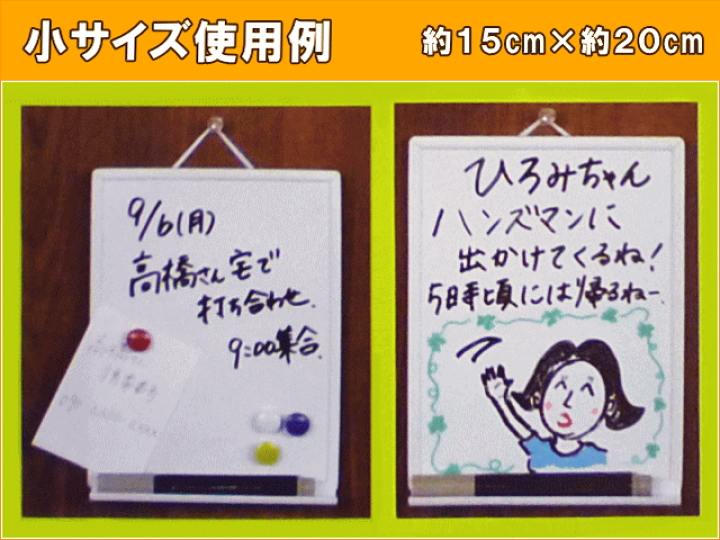 小サイズ使用例
約15cm×約20cm
9/6(月)
高橋さん宅で
打ち合わせ.
9:00集合.
ひろみちゃん
ハンズマンに
出かけてくるね!
5時頃には帰るねー.